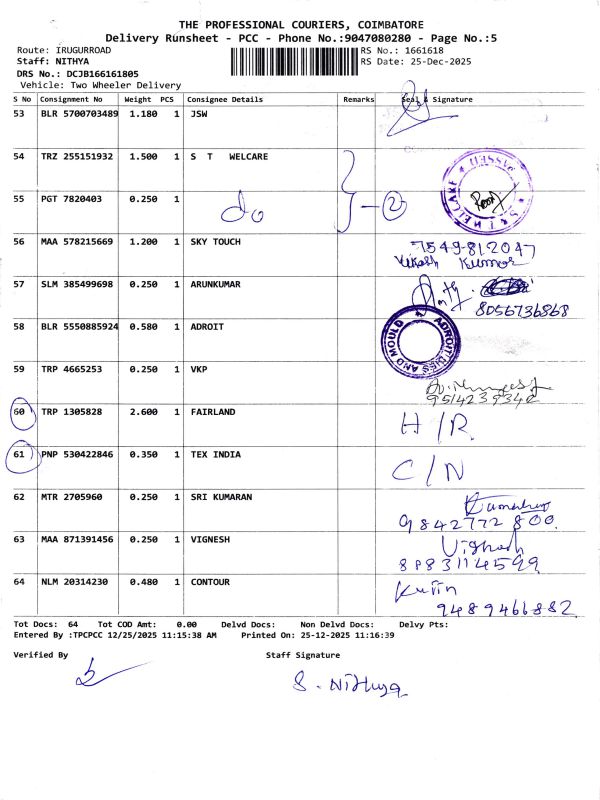 THE PROFESSIONAL COURIERS, COIMBATORE
Delivery Runsheet - PCC - Phone No.:9047080280 - Page No.:5
Route: IRUGURROAD RS No.: 1661618
Staff: NITHYA RS Date: 25-Dec-2025
DRS No.: DCJB166161805
Vehicle: Two Wheeler Delivery
S No Consignment No Weight PCS Consignee Details Remarks Seal & Signature
53 BLR 5700703489 1.180 1 JSW
54 TRZ 255151932 1.500 1 S T WELCARE
55 PGT 7820403 0.250 1 do 2
56 MAA 578215669 1.200 1 SKY TOUCH 7549812047
Vikash Kumar
57 SLM 385499698 0.250 1 ARUNKUMAR
8056736868
58 BLR 5550885924 0.580 1 ADROIT ADROIT DIES AND MOULD
59 TRP 4665253 0.250 1 VKP
9514239342
60 TRP 1305828 2.600 1 FAIRLAND H/R.
61 PNP 530422846 0.350 1 TEX INDIA C/N
62 MTR 2705960 0.250 1 SRI KUMARAN
9842772800.
63 MAA 871391456 0.250 1 VIGNESH Vighesh
8883114599
64 NLM 20314230 0.480 1 CONTOUR
9489466882
Tot Docs: 64 Tot COD Amt: 0.00 Delvd Docs: Non Delvd Docs: Delvy Pts:
Entered By :TPCPCC 12/25/2025 11:15:38 AM Printed On: 25-12-2025 11:16:39
Verified By Staff Signature
S. Nithya